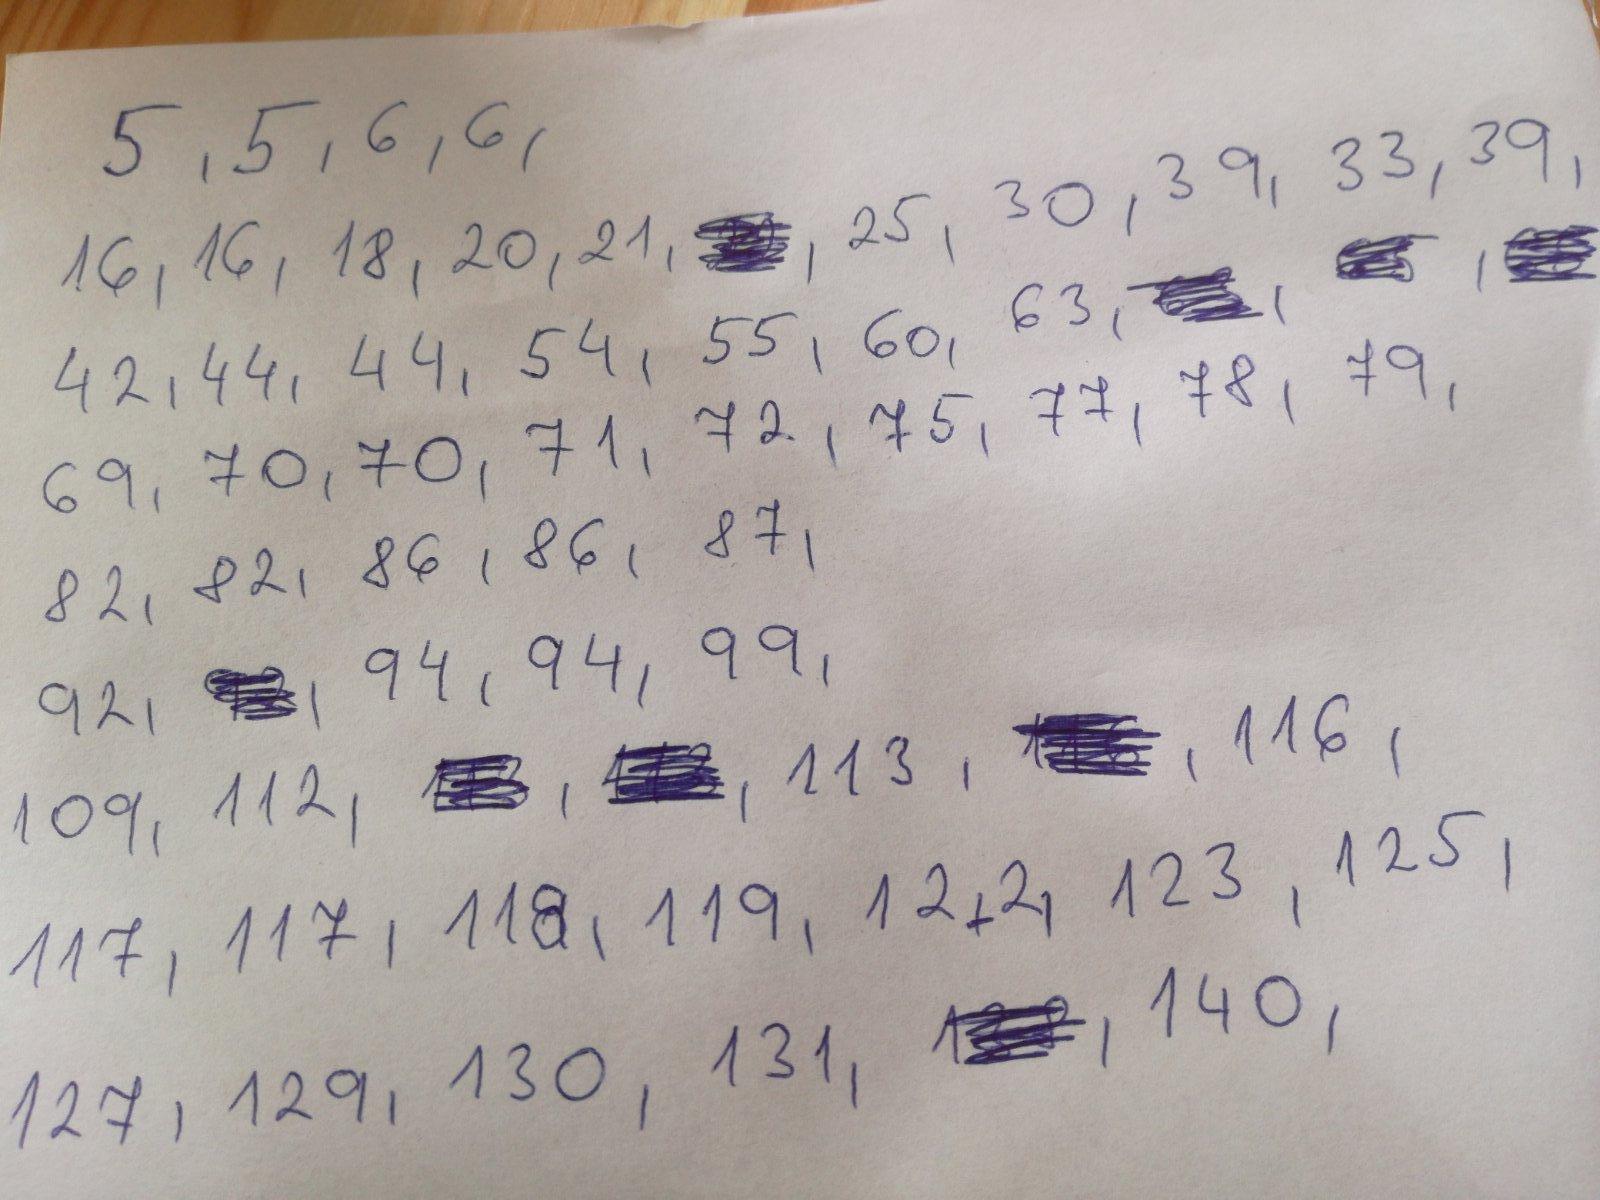 5, 5, 6, 6,
16, 16, 18, 20, 21, , 25, 30, 39, 33, 39,
42, 44, 44, 54, 55, 60, 63, , ,
69, 70, 70, 71, 72, 75, 77, 78, 79,
82, 82, 86, 86, 87,
92, , 94, 94, 99,
109, 112, , , 113, , 116,
117, 117, 118, 119, 12,2, 123, 125,
127, 129, 130, 131, , 140,